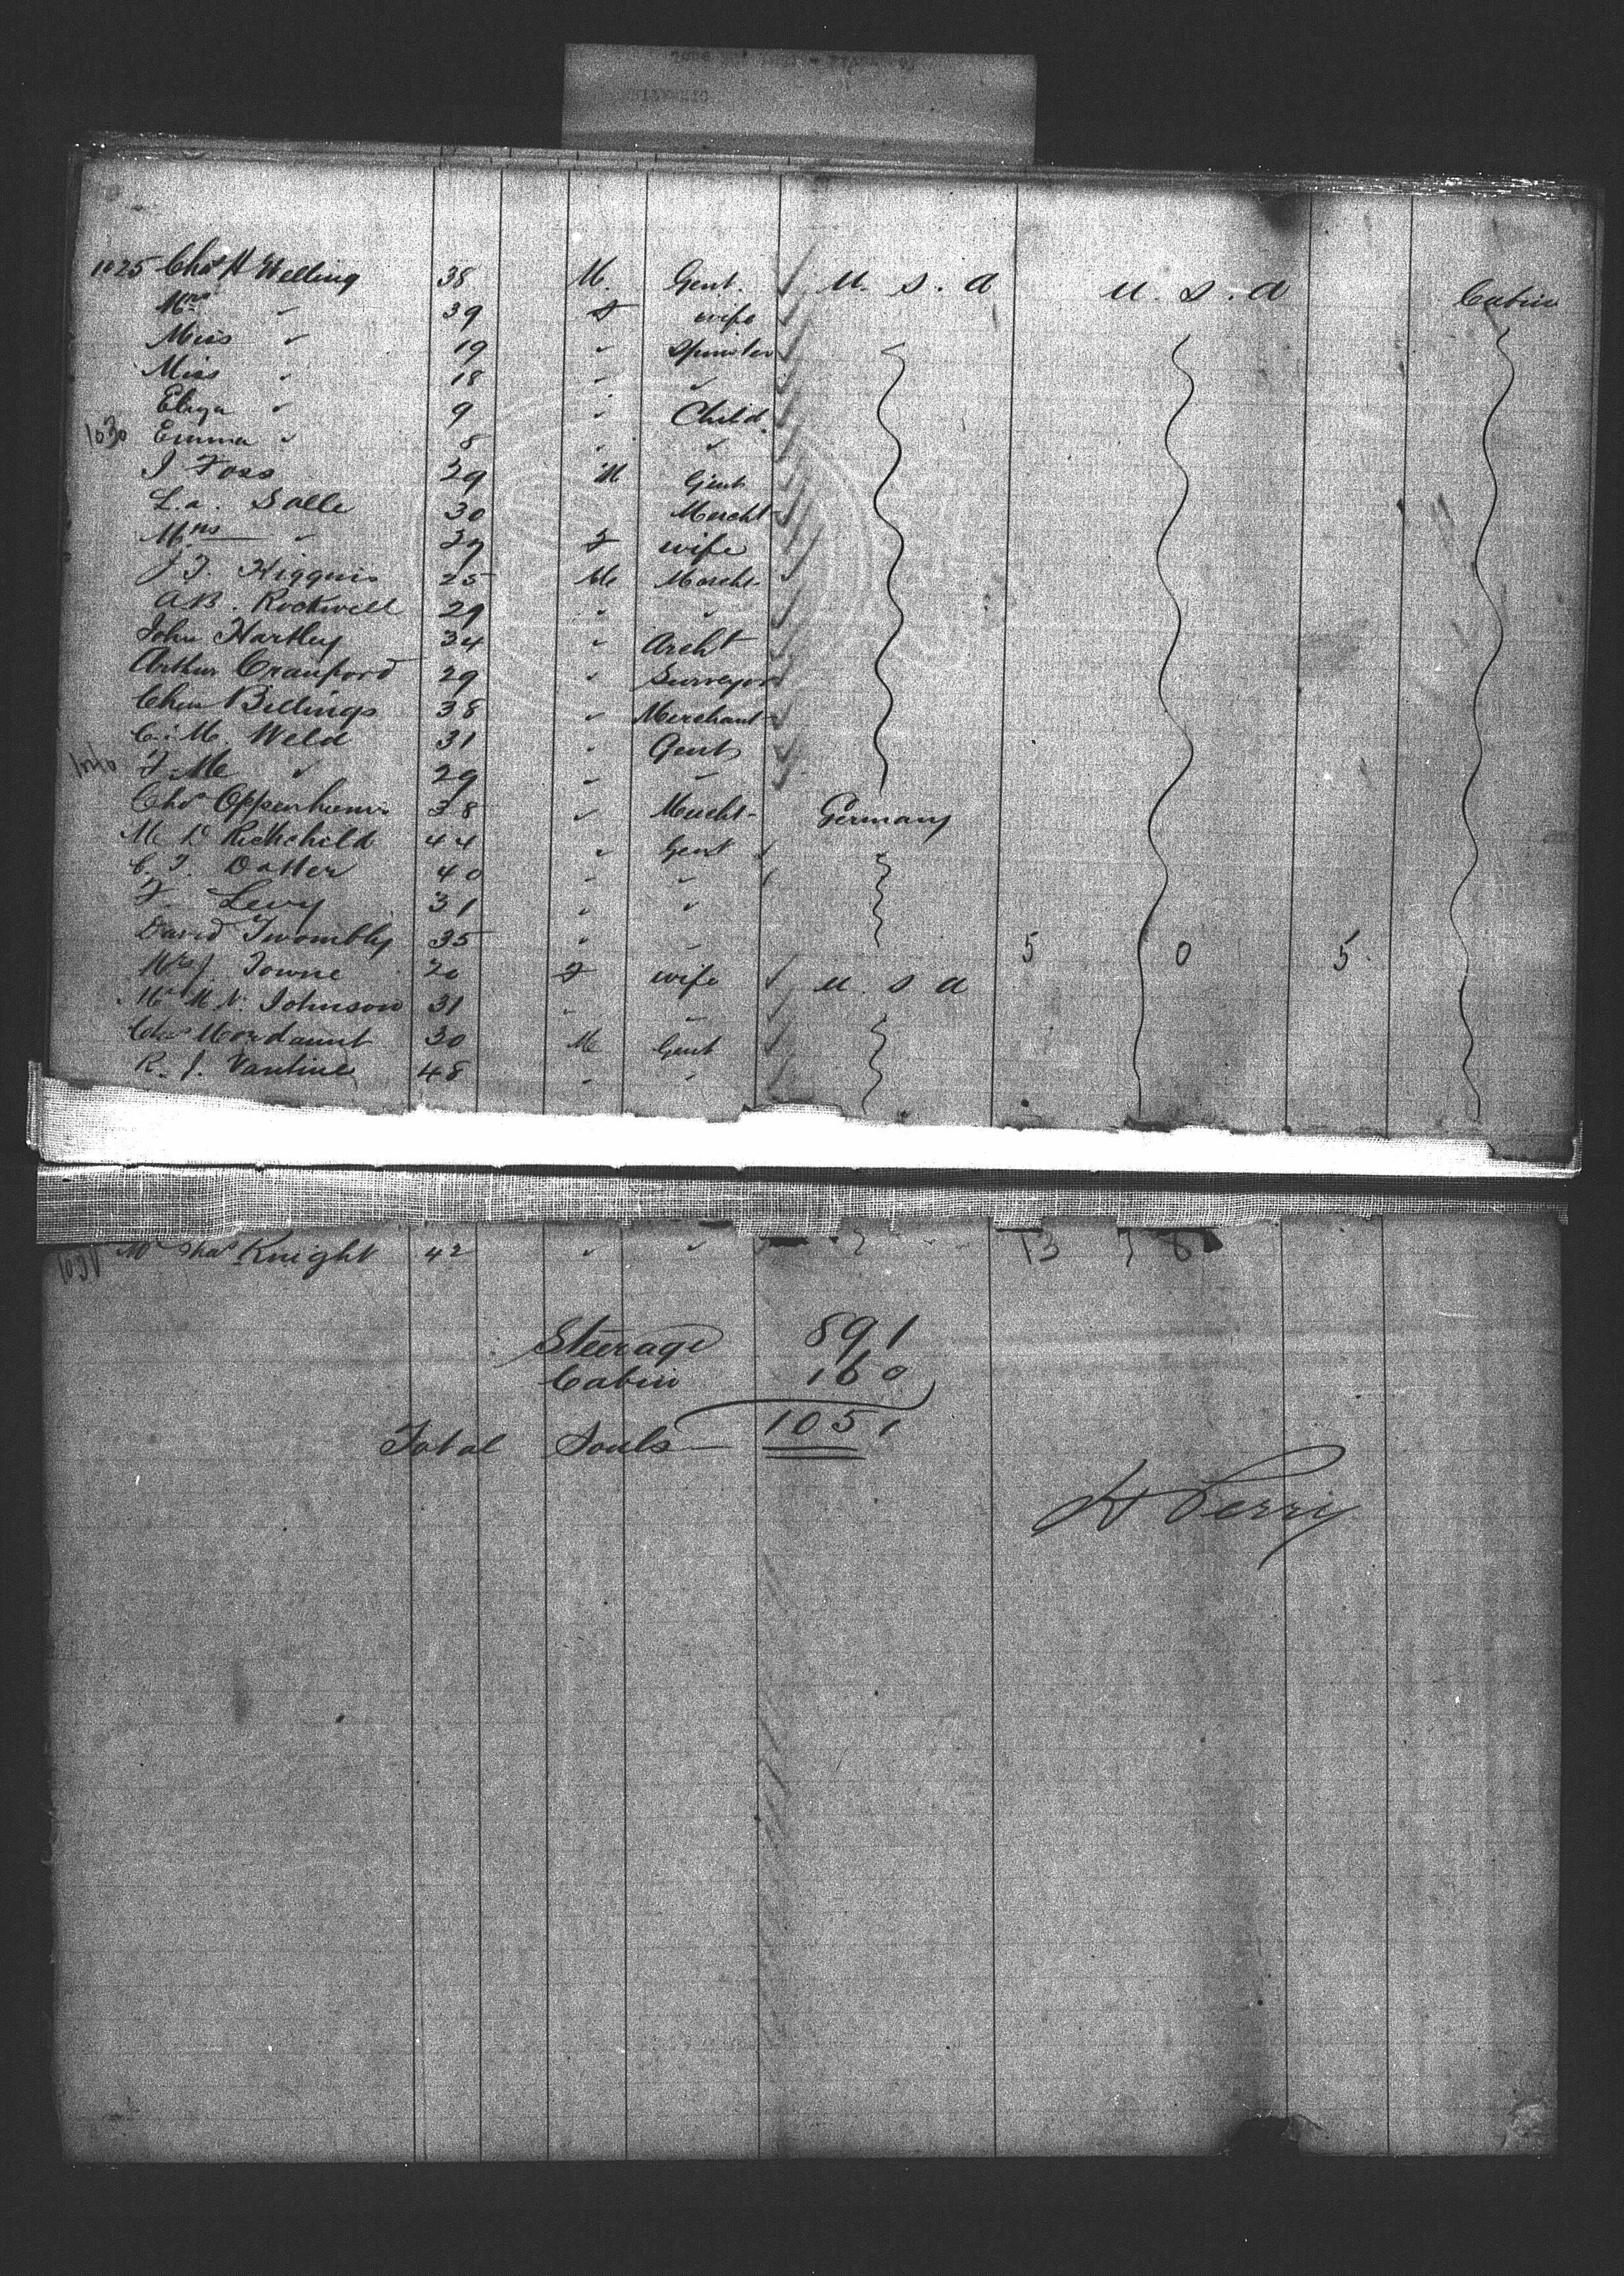 1025 Chas H Welling 38 M. Gent. ✓ U. S. A U. S. A Cabin
Mrs " 39 F wife ✓
Miss " 19 " Spinster ✓
Miss " 18 " " ✓
Eliza " 9 " Child. ✓
1030 Emma " 8 " " ✓
J Foss 29 M Gent ✓
L.a. Salle 30 Mercht ✓
Mrs " 27 F wife ✓
J. T. Higgins 25 M Mercht ✓
A.B. Rockwell 29 " " ✓
John Hartley 34 " Archt ✓
Arthur Cranford 29 " Surveyor ✓
Chas Billings 38 " Merchant ✓
C. M. Weld 31 " Gent ✓
1040 F. M " 29 " " ✓
Chas 38 " Mercht Germany
M D Rothchild 44 " Gent ✓
C. T. Dotter 40 " "
F. Levy 31 " "
David Twombly 35 " " 5 0 5
Mrs J. Towne 20 F wife ✓ U. S. A
M. N. Johnson 31 " "
Chas Mordaunt 30 M Gent ✓
R. J. Vantine 48 " "
Knight 42 " " 13
Steerage 891
Cabin 160
Total Souls 1051
H Perry